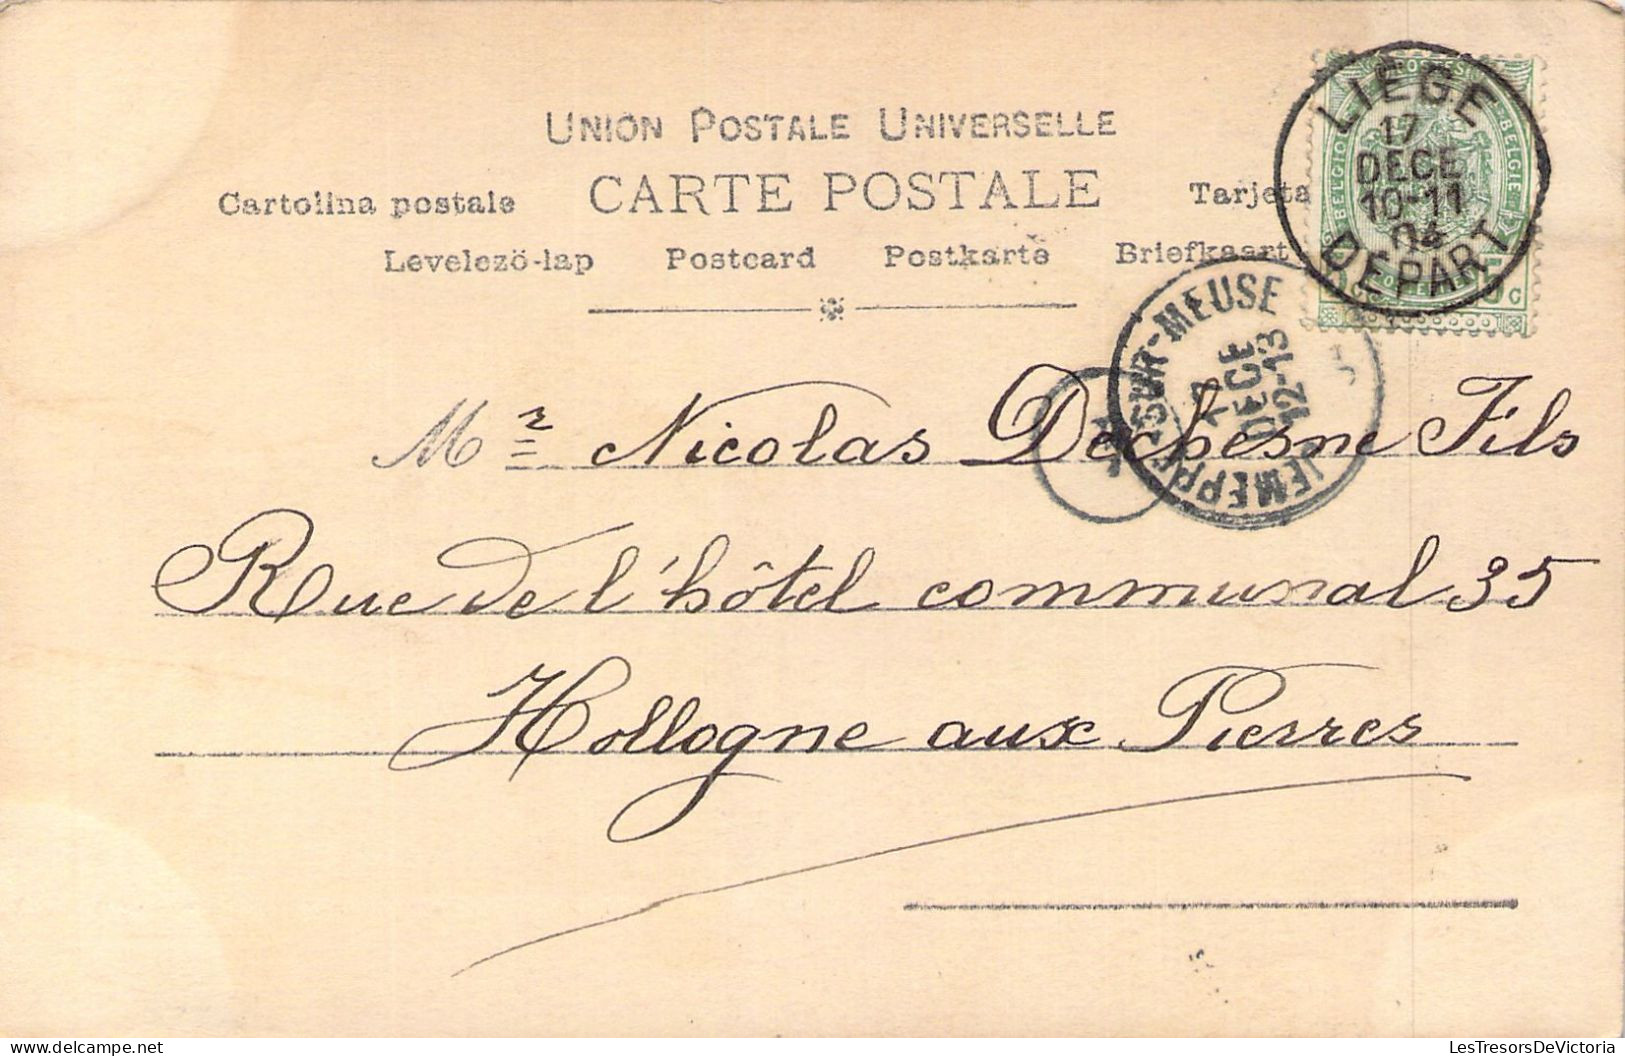 UNION POSTALE UNIVERSELLE
CARTE POSTALE
Cartolina postale
Tarjeta
Levelező-lap Postcard Postkarte Briefkaart
LIÈGE
17
DECE
10-11
04
DEPART
BELGIQUE
BELGIË
5 c
SUR-MEUSE
17
DECE
12-13
JEMEPPE
Mr Nicolas Dechesne Fils
Rue de l'hôtel communal 35
Hollogne aux Pierres
LesTresorsDeVictoria